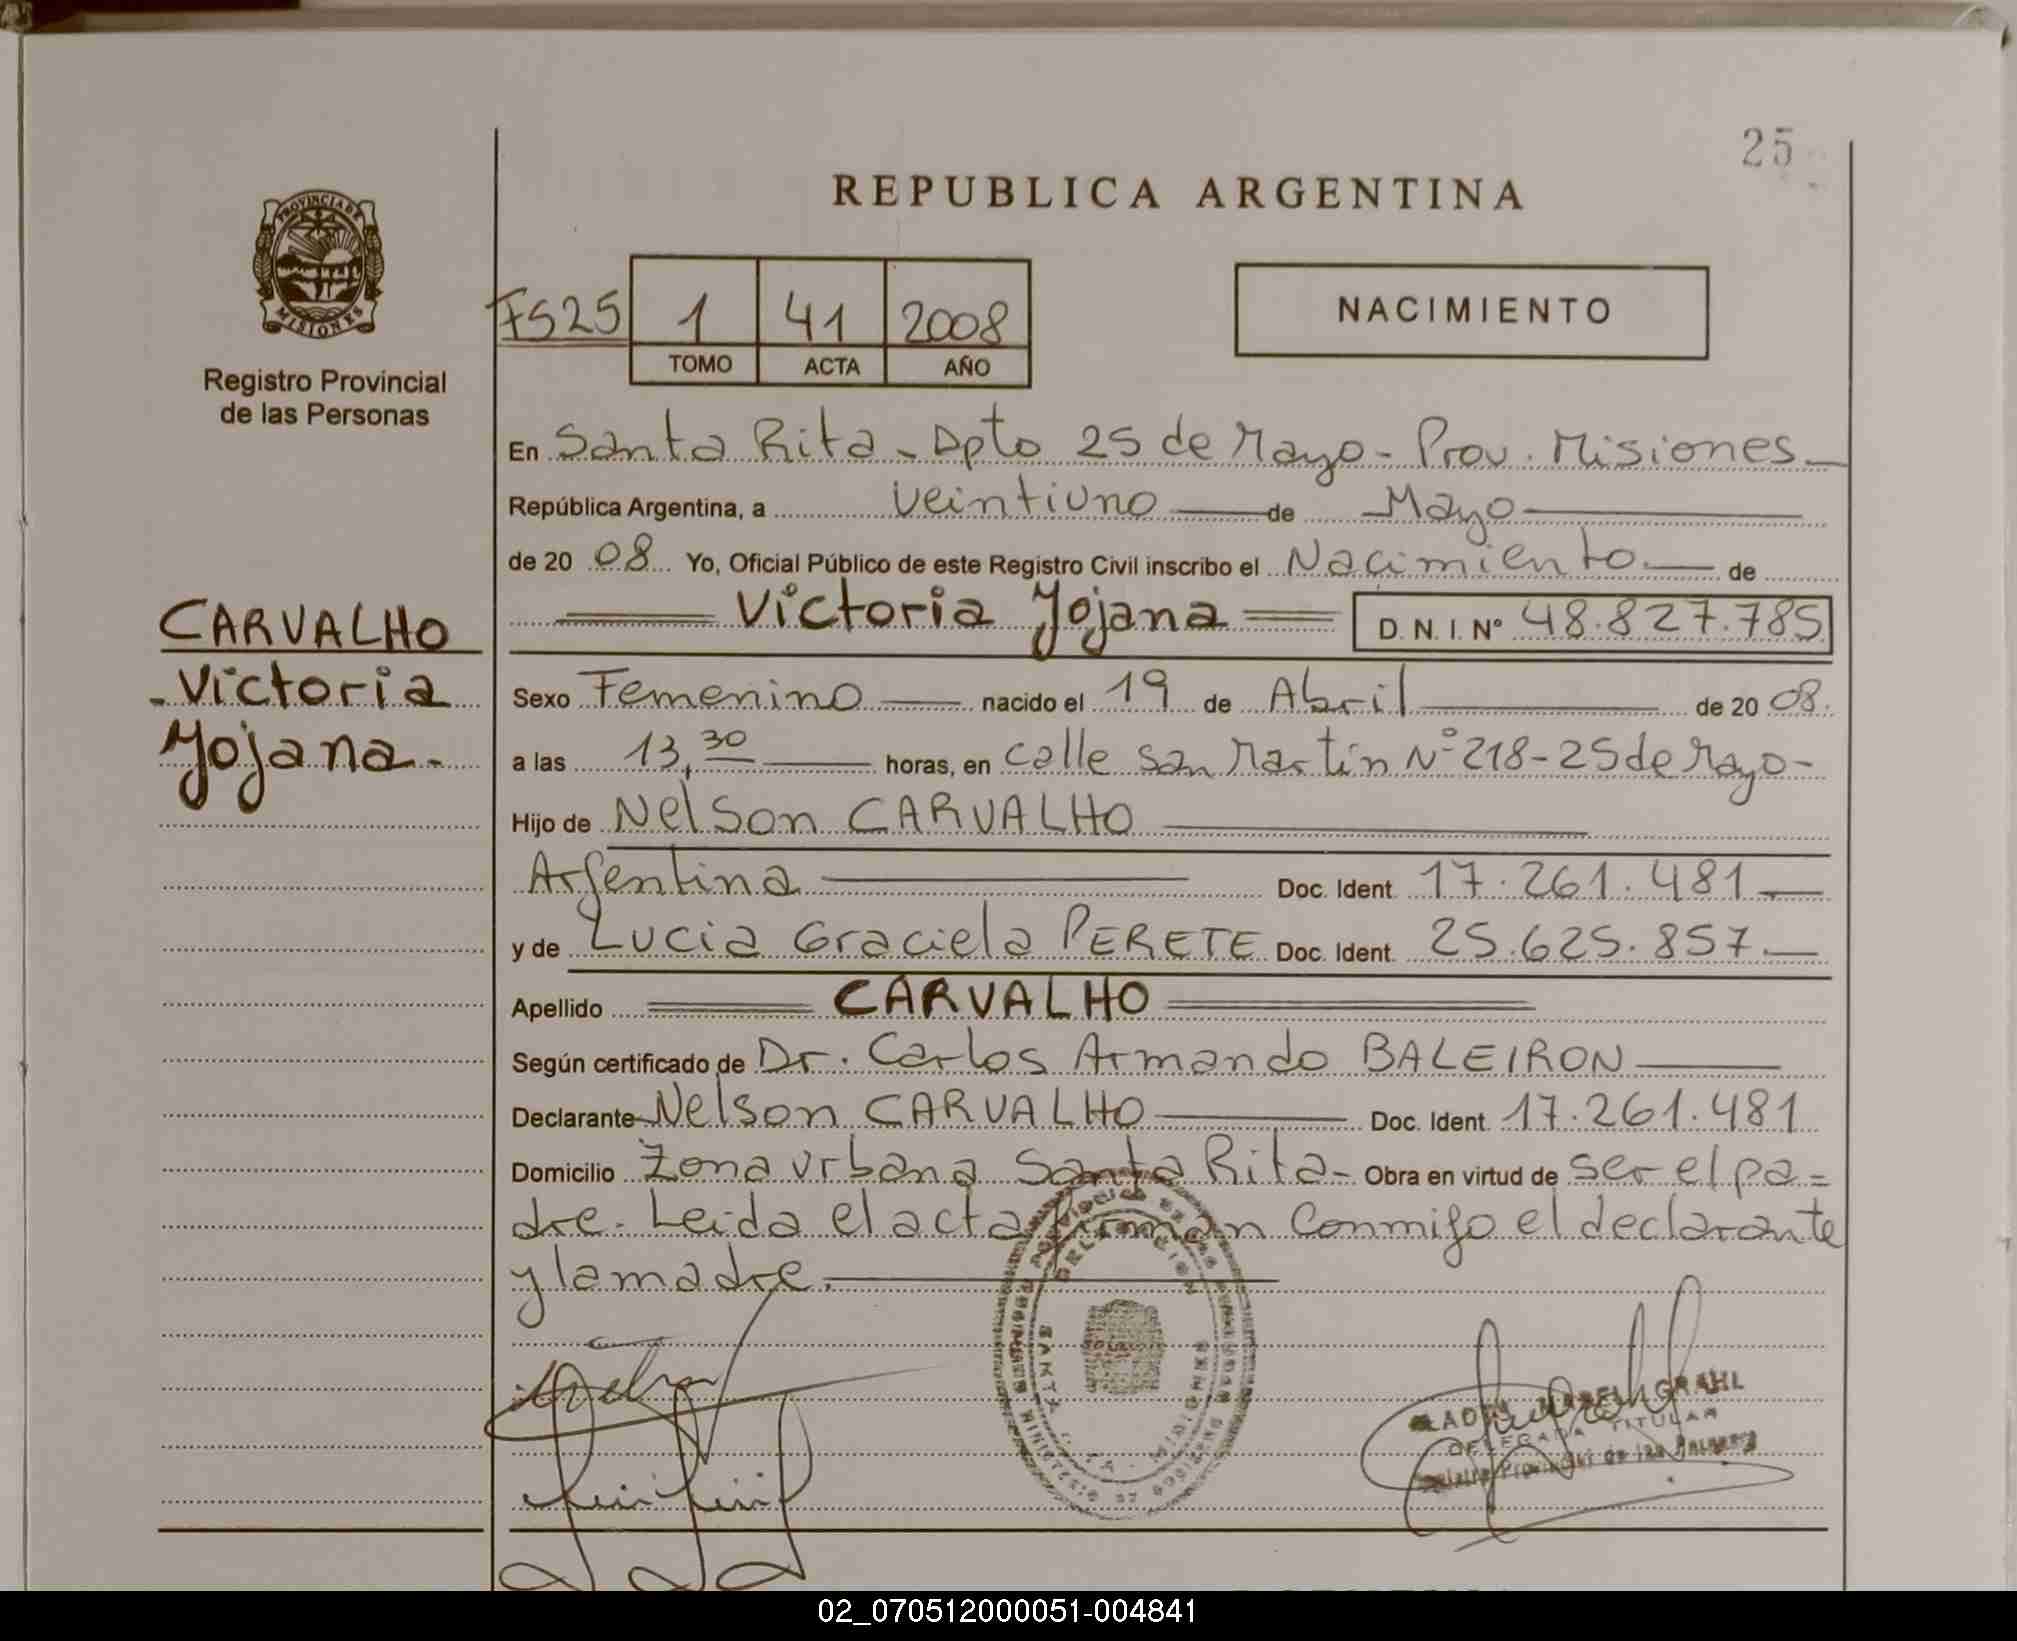 25
REPUBLICA ARGENTINA
PROVINCIA DE
MISIONES
Registro Provincial
de las Personas
FS25 1 41 2008
TOMO ACTA AÑO
NACIMIENTO
En Santa Rita - Dpto 25 de Mayo - Prov. Misiones
República Argentina, a veintiuno de Mayo
de 2008 Yo, Oficial Público de este Registro Civil inscribo el Nacimiento de
Victoria Yojana D. N. I. N° 48.827.785
CARVALHO
Victoria
Yojana.
Sexo Femenino nacido el 19 de Abril de 2008.
a las 13,30 horas, en calle San Martin N° 218-25 de Mayo-
Hijo de Nelson CARVALHO
Argentina Doc. Ident. 17.261.481
y de Lucia Graciela PERETE Doc. Ident. 25.625.857.
Apellido CARVALHO
Según certificado de Dr. Carlos Armando BALEIRON
Declarante Nelson CARVALHO Doc. Ident. 17.261.481
Domicilio Zona urbana Santa Rita- Obra en virtud de ser el pa=
dre. Leida el acta firman conmigo el declarante
y la madre.
GRAHL
DELEGADA TITULAR
Provincial de las
02_070512000051-004841